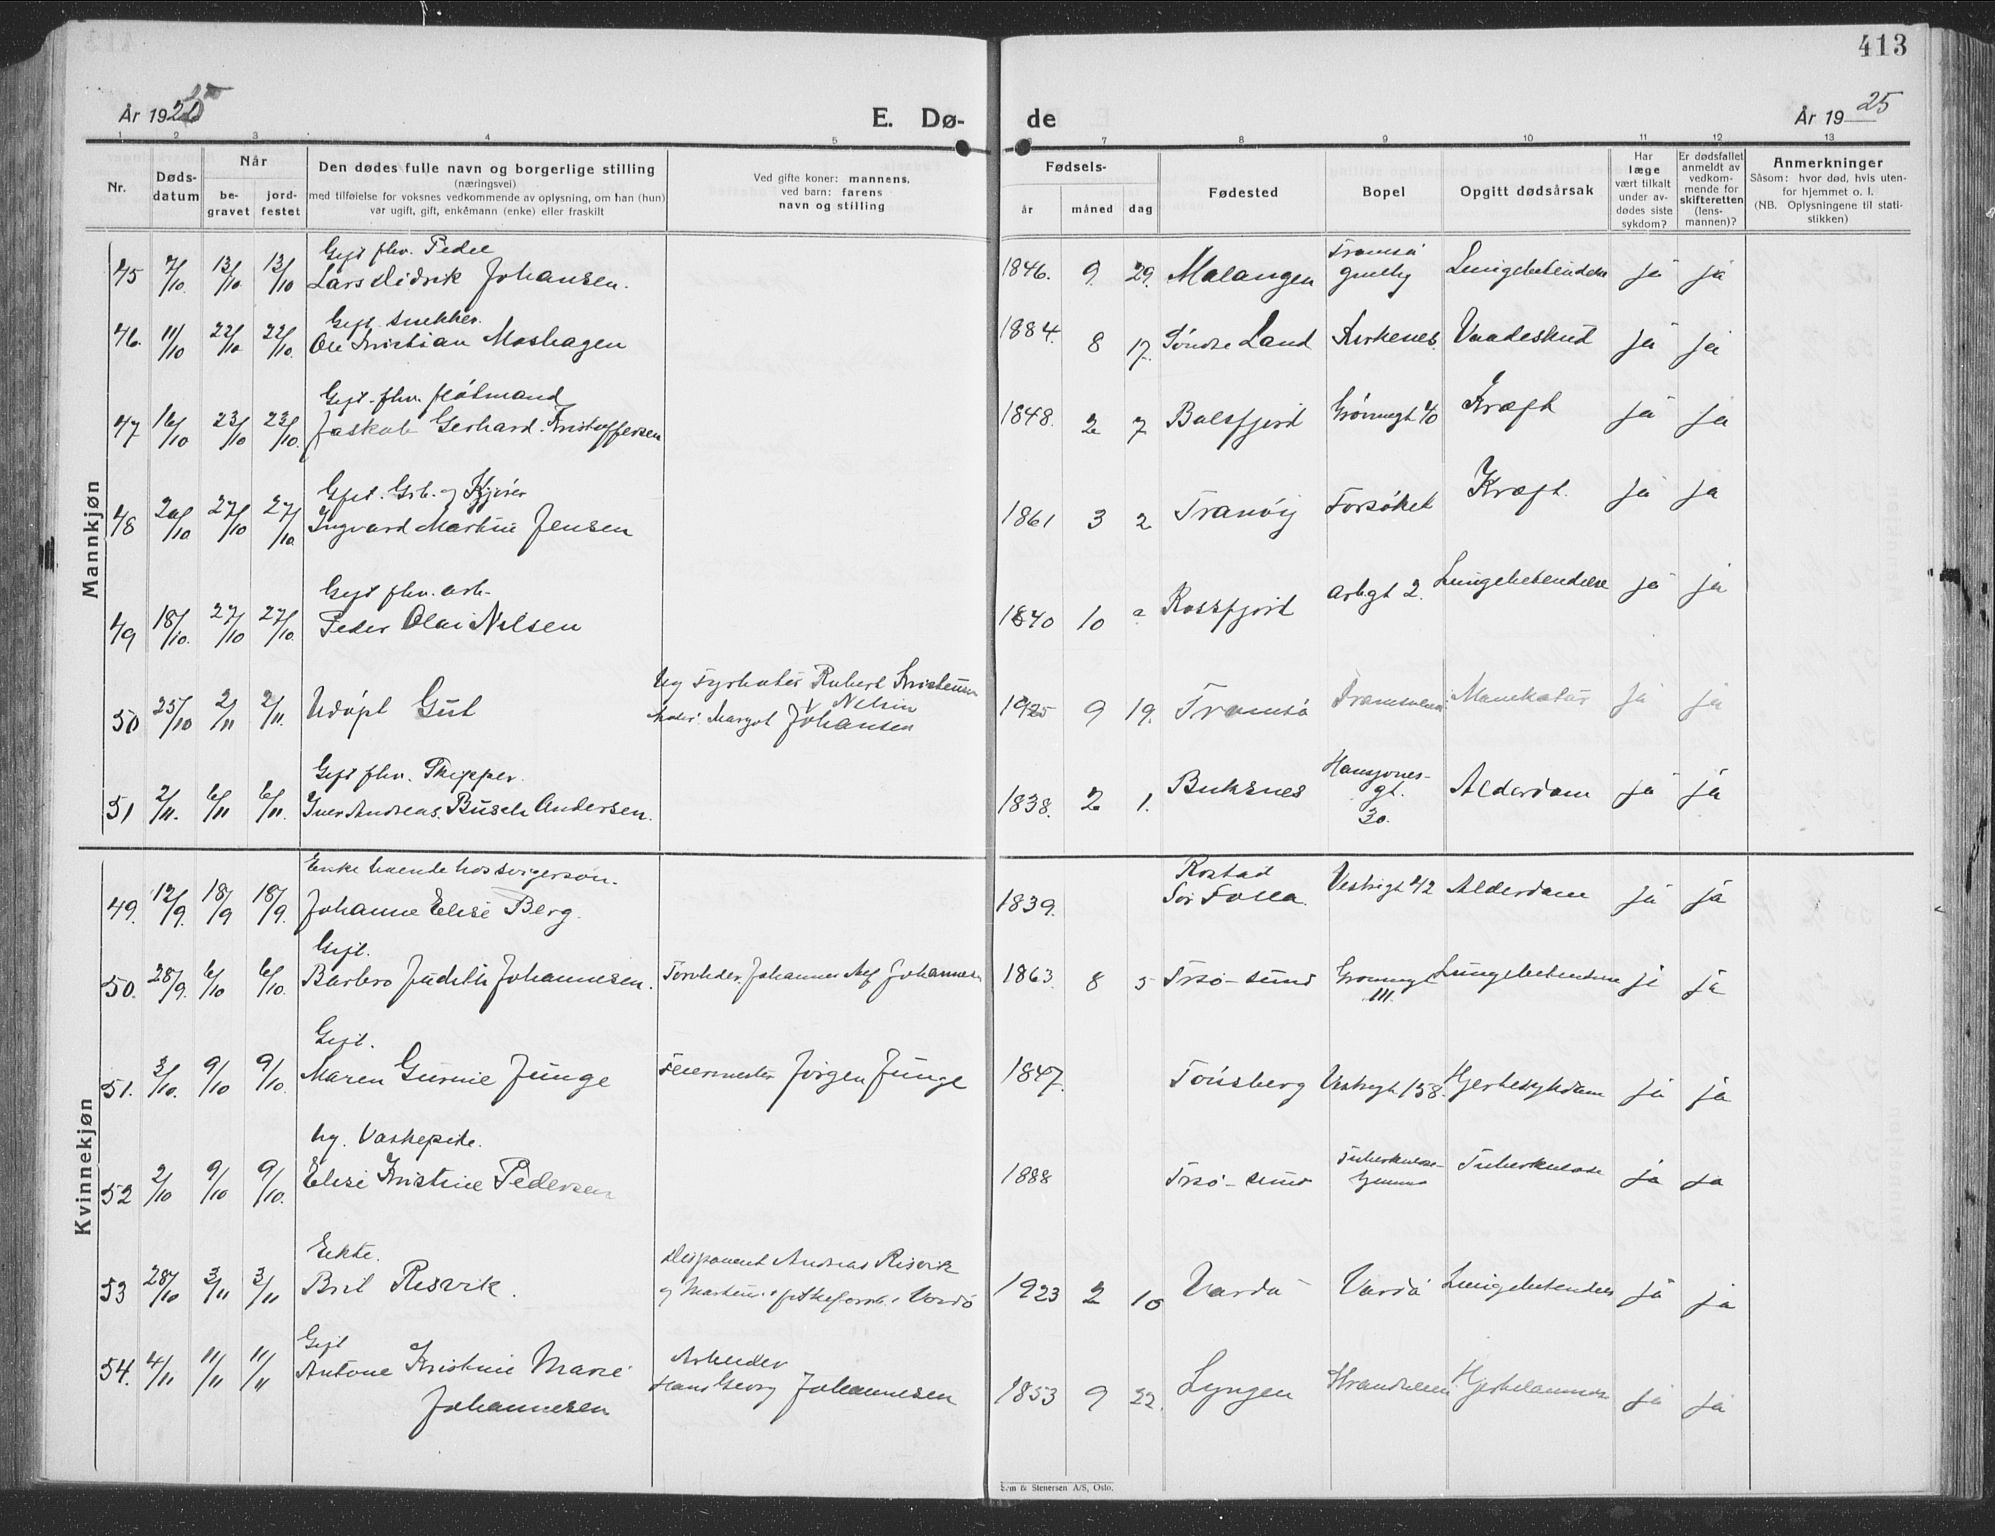 413
År 1925
E. Dø-
de
År 1925
1 2 3 4 5 6 7 8 9 10 11 12 13
Nr.
Døds-
datum
Når
be-
gravet
jord-
festet
Den dødes fulle navn og borgerlige stilling
(næringsvei)
med tilføielse for voksnes vedkommende av oplysning, om han (hun)
var ugift, gift, enkemann (enke) eller fraskilt
Ved gifte koner: mannens,
ved barn: farens
navn og stilling
Fødsels-
år måned dag
Fødested
Bopel
Opgitt dødsårsak
Har
læge
vært tilkalt
under av-
dødes siste
sykdom?
Er dødsfallet
anmeldt av
vedkom-
mende for
skifteretten
(lens-
mannen)?
Anmerkninger
Såsom: hvor død, hvis uten-
for hjemmet o. l.
(NB. Oplysningene til stati-
stikken)
Mannkjøn
Gift fhv. Pedel
45 7/10 13/10 13/10 Lars Didrik Johansen. 1846. 9 29. Malangen Tromsø ja ja
Gift snekker.
46. 11/10 22/10 22/10. Ole Kristian Moshagen 1884. 8 17. Søndre Land Kirkenes. Vaadeskud ja ja
Gift fhv.
47 16/10 23/10 23/10. Jaskob Gerhard Kristoffersen 1848. 2 7 Balsfjord Kræft ja ja
Gift. Grb. og
48 20/10 27/10 27/10. Ingvard Martin Jensen 1861 3 2 Tranöy Forsøket Kræft. ja ja
Gift fhv. arb.
49 18/10. 27/10 27/10. Peder Olai Nilsen 1840 10 Rossfjord Arbgt 2. Lungebetendelse ja ja
50 25/10 2/11 2/11. Udøpt Gut Ug fyrbøter Robert Kristensen
Nilsen
Moder: Margot Johansen 1925 9 19. Tromsø ja ja
Gift fhv. Skipper.
51 2/11. 6/11 6/11. Iver Andreas Busch Andersen. 1838. 2 1. Buksnes Hansjones-
gt.
30. Alderdom ja ja
Kvinnekjøn
Enke boende hos svigersøn.
49. 12/9. 18/9 18/9. Johanne Elise Berg. 1839. Rostad
Sør Folla Vestregt 42 Alderdom ja ja
Gift.
50. 28/9. 6/10 6/10. Barbro Judith Johannesen. Johannes Johannesen 1863 8 5 Trsø-sund Grønnegt
111. Lungebetendelse ja ja
Gift.
51. 3/10. 9/10 9/10. Maren Gurine Junge Feiermester Jørgen Junge 1847. Tönsberg Vestregt 158. Hjertesykdom ja ja
Ug. Vaskepike.
52 2/10 9/10 9/10. Elise Kristine Pedersen 1888 Trsø-sund Tuberkulose-
hjemmet Tuberkulose ja ja
Ekte.
53 28/10 3/11 3/11 Brit Risvik. Disponent Andreas Risvik
og 1923 2 10 Vardø Vardø Lungebetendelse ja ja
Gift
54. 4/11 11/11 11/11 Antone Kristine Marie
Johannesen Arbeider
Hans Georg Johannesen 1853 9 22. Lyngen Strandveien ja ja
Sem & Stenersen A/S, Oslo.